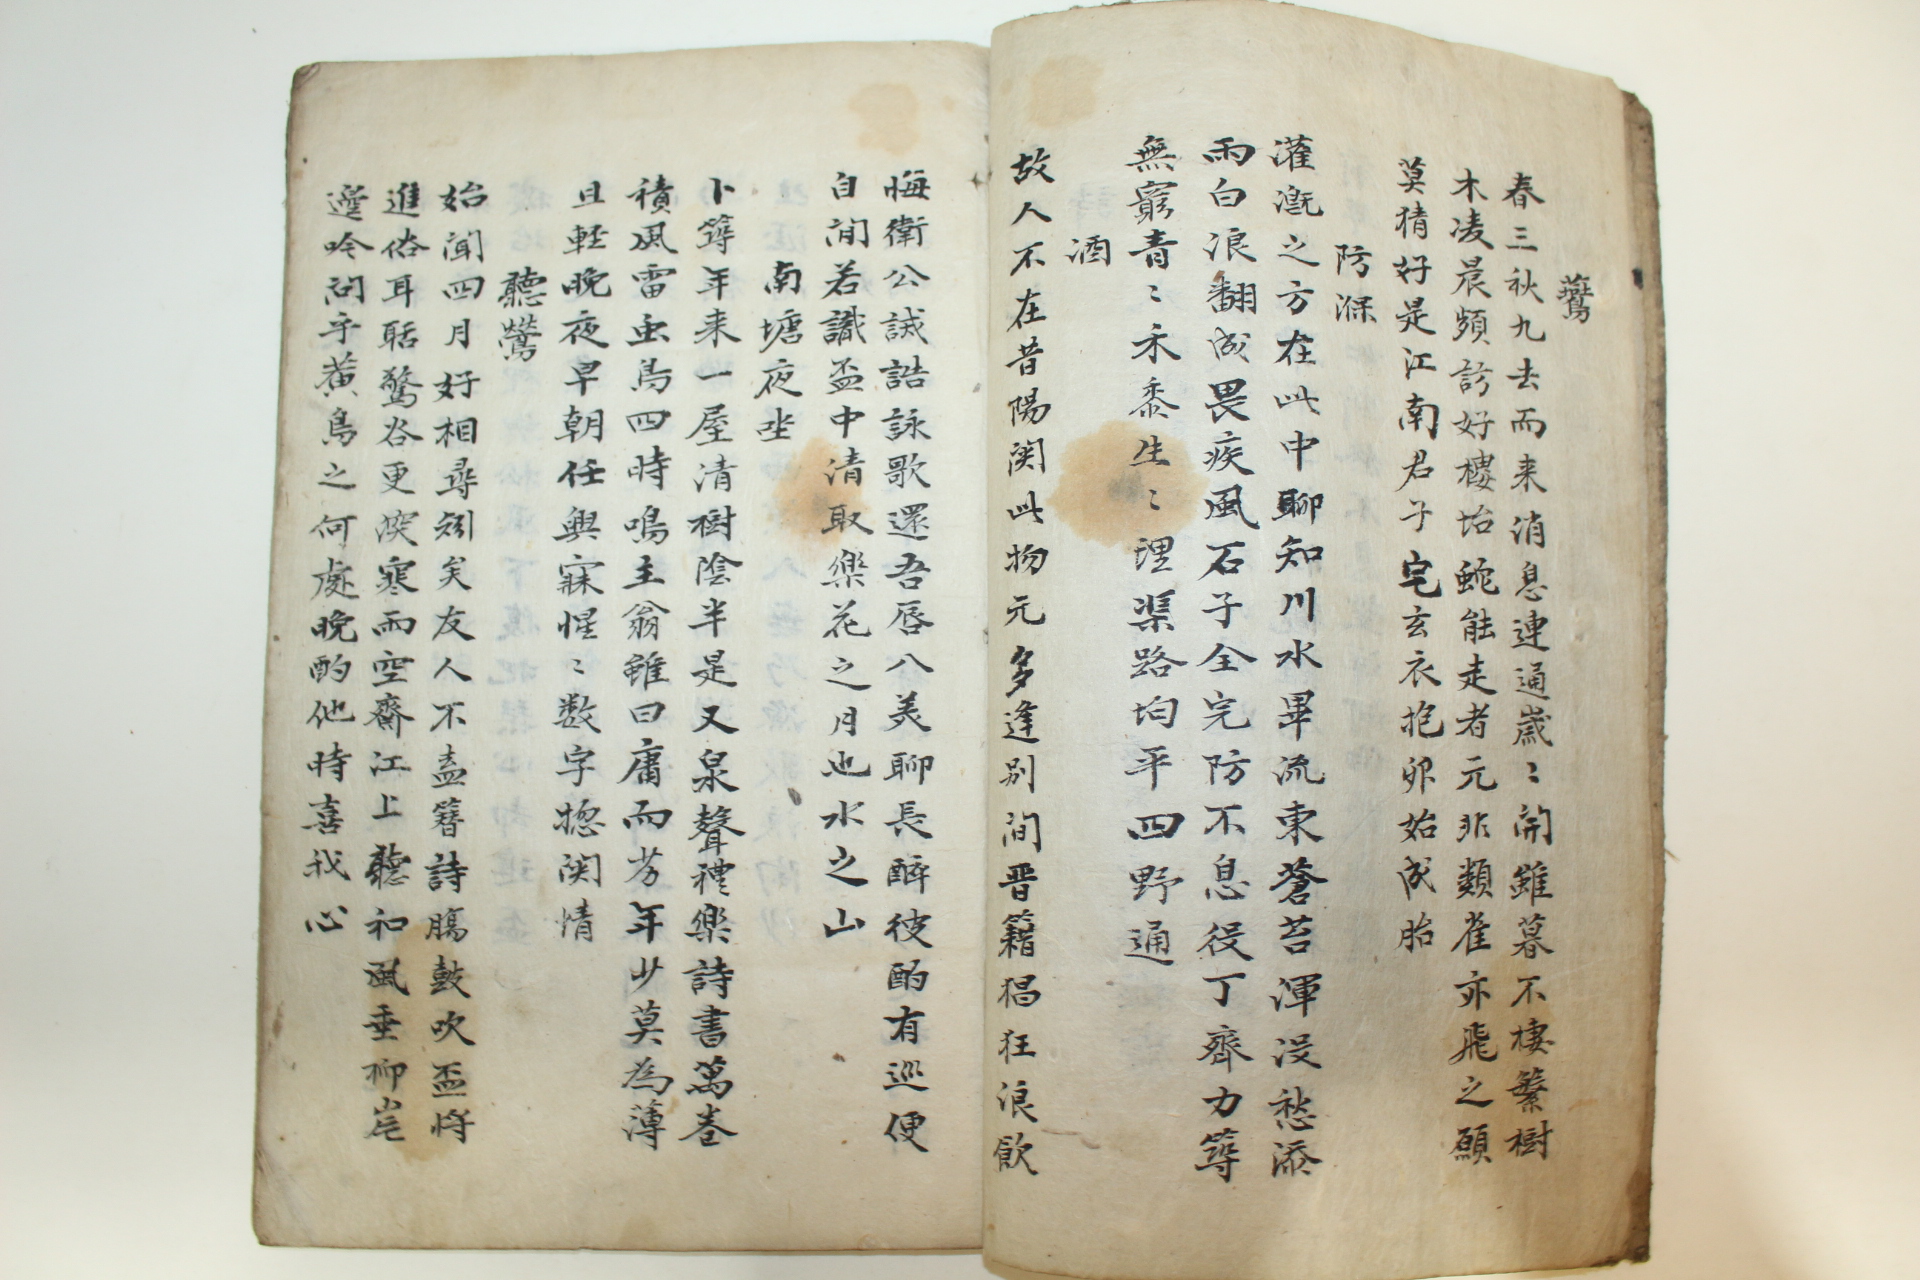 鷰
春三秋九去而来消息連通歲〻開雖暮不棲繁樹
木凌晨頻訪好樓坮蛇能走者元非類雀亦飛之願
莫猜好是江南君子宅玄衣抱卵始成胎
防湺
灌漑之方在此中聊知川水畢流東蒼苔渾没愁添
雨白浪翻成畏疾風石子全完防不息役丁齊力築
無窮青〻禾黍生〻理渠路均平四野通
酒
故人不在昔陽関此物元多逢別間晋籍猖狂浪飮
悔衛公誡誥詠歌還吾唇八美聊長醉彼酌有巡便
自間若識盃中清取樂花之月也水之山
南塘夜坐
卜築年来一屋清樹陰半是又泉聲禮樂詩書萬卷
積風雷虫鳥四時鳴主翁雖曰庸而芳年少莫為薄
且輕晩夜早朝任興寐惺〻数字摠関情
聽鶯
始聞四月好相尋矧矣友人不盍簪詩膓鼓吹盃将
進俗耳聒驚谷更深寒而空齋江上聽和風垂柳岸
邊吟問乎黄鳥之何處晩酌他時喜我心